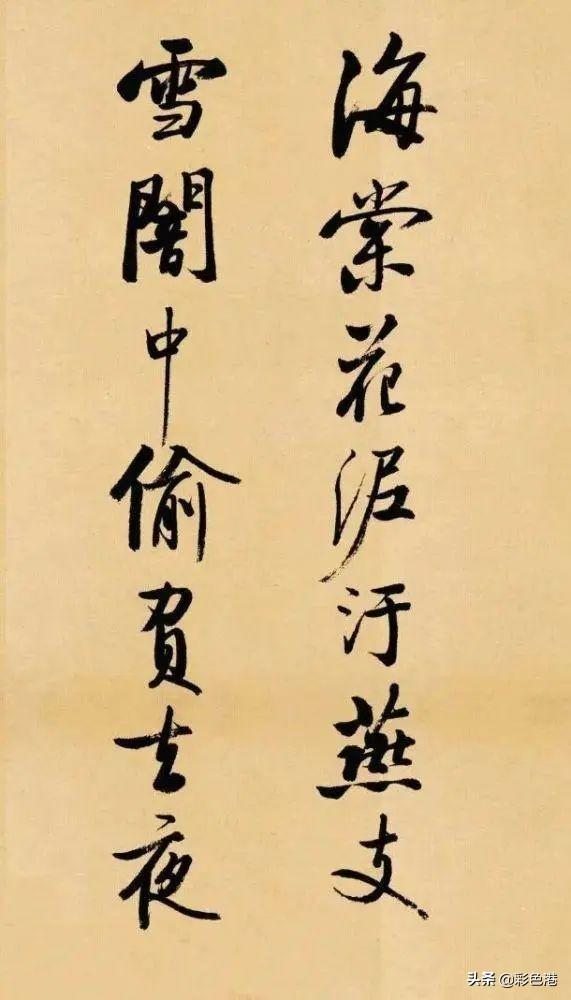 海棠花泥汙燕支
雪闇中偷負去夜
头条@彩色港